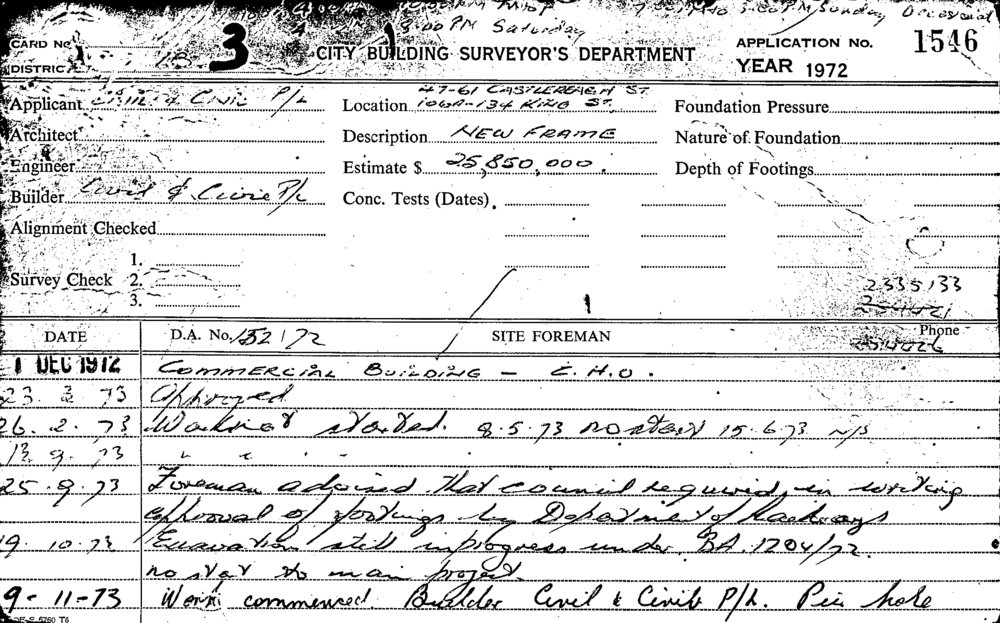 9:00 PM Saturday
CARD No. 3 CITY BUILDING SURVEYOR'S DEPARTMENT APPLICATION No. 1546
DISTRICT YEAR 1972
Applicant Civil & Civic P/L Location 47-61 CASTLEREAGH ST. 106A-134 KING ST. Foundation Pressure
Architect Description NEW FRAME Nature of Foundation
Engineer Estimate $ 25,850,000. Depth of Footings
Builder Civil & Civic P/L Conc. Tests (Dates)
Alignment Checked
1.
Survey Check 2.
3.
2335133
DATE D.A. No. 152/72 SITE FOREMAN Phone
1 DEC 1972 COMMERCIAL BUILDING - E.H.O.
23. 2 73 Approved
26. 2. 73 Work not started. 8.5.73 no start 15.6.73 N/S
13 9. 73 " " "
25. 9. 73 Foreman advised that council required, in writing
approval of footings by Department of Railways
19. 10. 73 Excavation still in progress under BA. 1204/72.
no start to main project.
9-11-73 Work commenced Builder Civil & Civic P/L. Pier hole